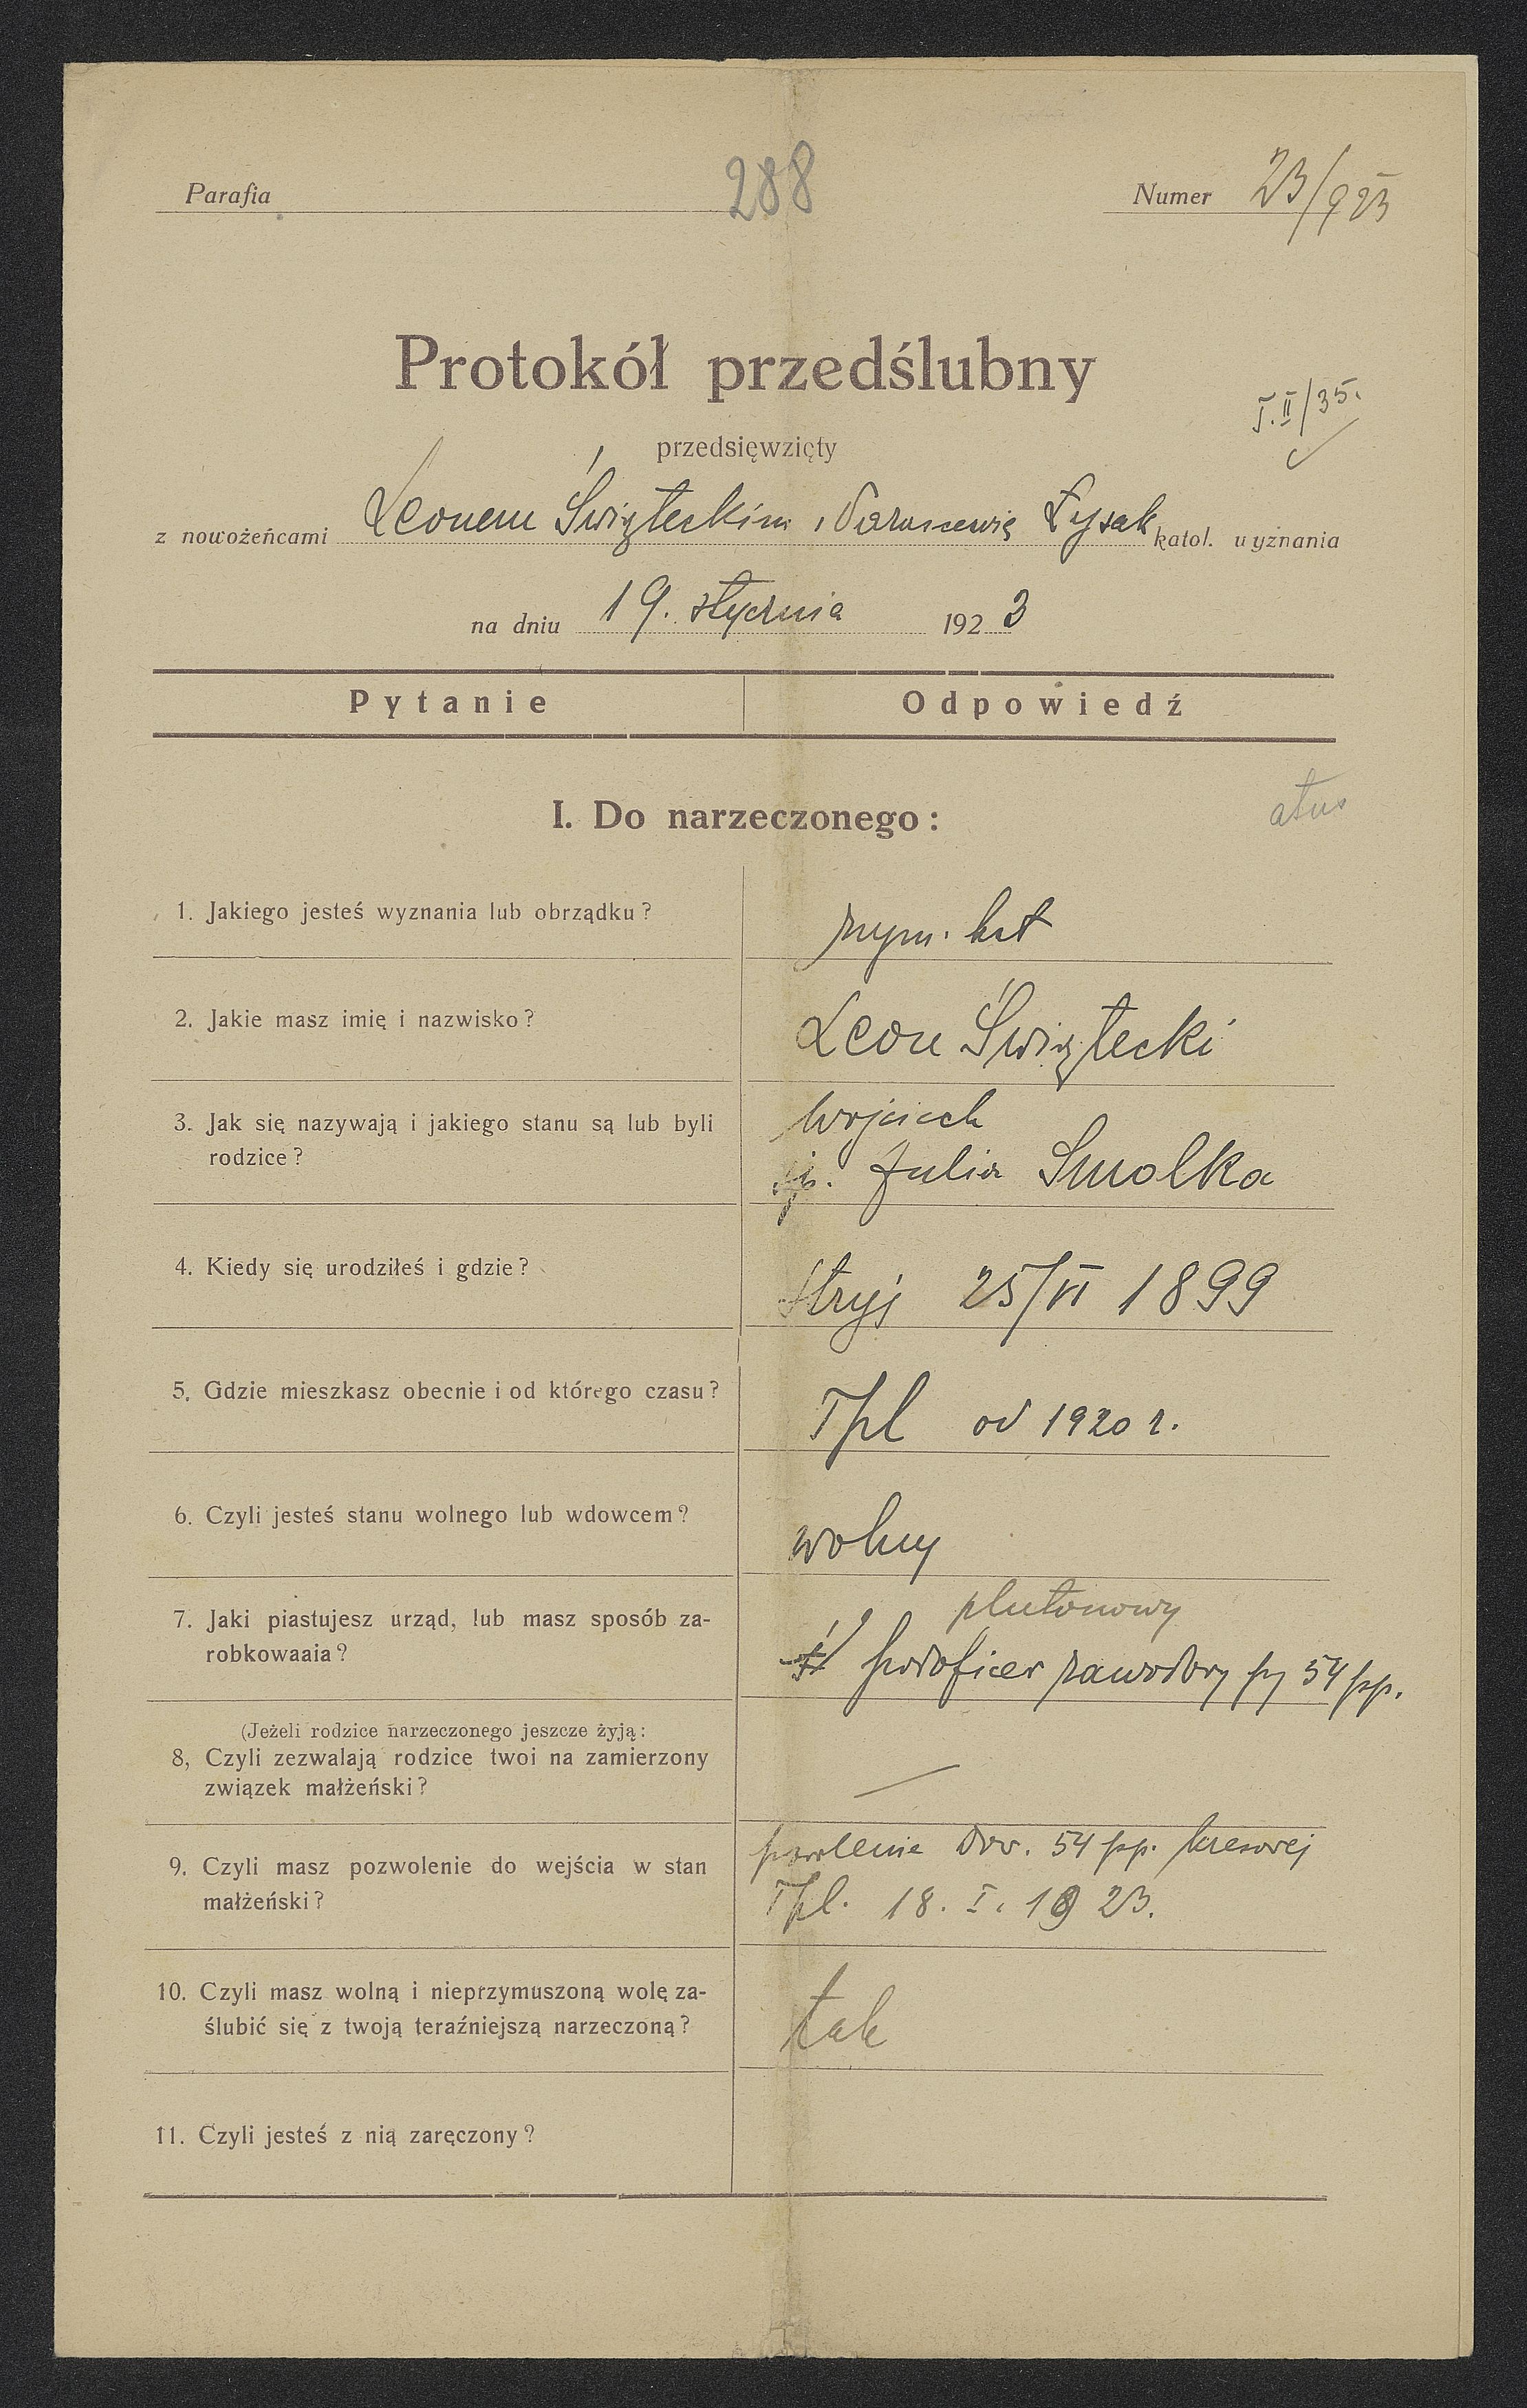 288
Parafia
Numer 23/923
Protokół przedślubny
T.II/35.
przedsięwzięty
z nowożeńcami Leonem Świąteckim i Parascewią Łysak katol. wyznania
na dniu 19. stycznia 1923
Pytanie Odpowiedź
I. Do narzeczonego:
1. Jakiego jesteś wyznania lub obrządku?
rzym. kat
2. Jakie masz imię i nazwisko?
Leon Świątecki
3. Jak się nazywają i jakiego stanu są lub byli
rodzice?
Wojciech
śp. Julia Smolka
4. Kiedy się urodziłeś i gdzie?
Stryj 25/VI 1899
5. Gdzie mieszkasz obecnie i od którego czasu?
Tpl od 1920 r.
6. Czyli jesteś stanu wolnego lub wdowcem?
wolny
7. Jaki piastujesz urząd, lub masz sposób za-
robkowaaia?
plutonowy
podoficer zawodowy 54 pp.
(Jeżeli rodzice narzeczonego jeszcze żyją:
8, Czyli zezwalają rodzice twoi na zamierzony
związek małżeński?
9. Czyli masz pozwolenie do wejścia w stan
małżeński?
pozwolenie Dow. 54 pp. kresowej
Tpl. 18. I. 1923.
10. Czyli masz wolną i nieprzymuszoną wolę za-
ślubić się z twoją teraźniejszą narzeczoną?
tak
11. Czyli jesteś z nią zaręczony?